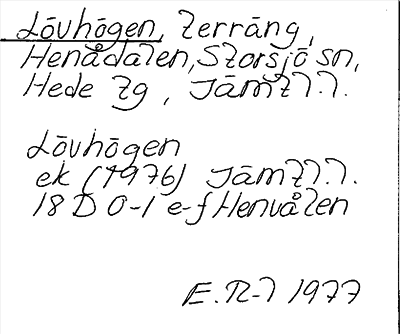 Lövhögen, terräng,
Henådalen, Storsjö sn,
Hede tg, Jämtl.l.
Lövhögen
ek (1976) Jämtl.l.
18 D 0-1 e-f Henvålen
E.R-l 1977